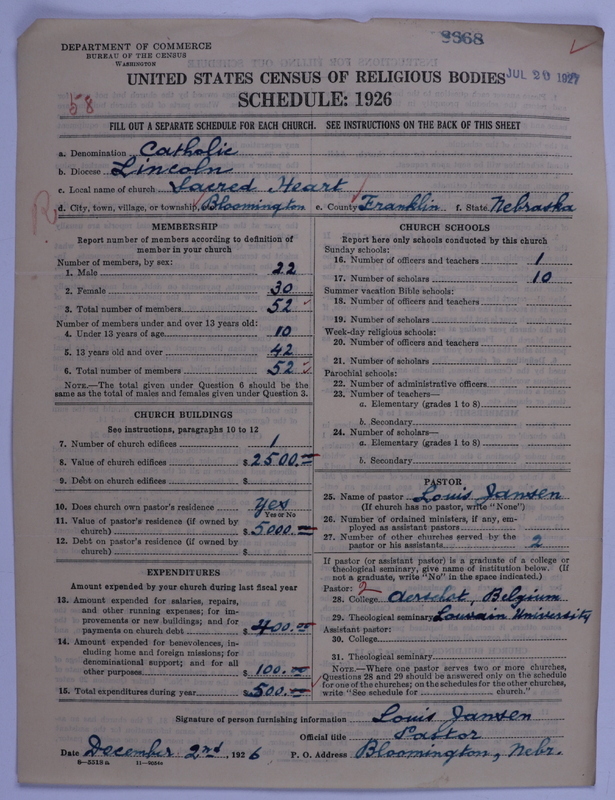 9968
DEPARTMENT OF COMMERCE
BUREAU OF THE CENSUS
WASHINGTON
UNITED STATES CENSUS OF RELIGIOUS BODIES
JUL 20 1927
58
SCHEDULE: 1926
FILL OUT A SEPARATE SCHEDULE FOR EACH CHURCH. SEE INSTRUCTIONS ON THE BACK OF THIS SHEET
a. Denomination Catholic
b. Diocese Lincoln
c. Local name of church Sacred Heart
R
d. City, town, village, or township Bloomington e. County Franklin f. State Nebraska
MEMBERSHIP
Report number of members according to definition of
member in your church
Number of members, by sex:
1. Male 22
2. Female 30
3. Total number of members 52
Number of members under and over 13 years old:
4. Under 13 years of age 10
5. 13 years old and over 42
6. Total number of members 52
NOTE.—The total given under Question 6 should be the
same as the total of males and females given under Question 3.
CHURCH BUILDINGS
See instructions, paragraphs 10 to 12
7. Number of church edifices 1
8. Value of church edifices $2500.00
9. Debt on church edifices $
10. Does church own pastor's residence Yes
Yes or No
11. Value of pastor's residence (if owned by
church) $5000.00
12. Debt on pastor's residence (if owned by
church) $
EXPENDITURES
Amount expended by your church during last fiscal year
13. Amount expended for salaries, repairs,
and other running expenses; for im-
provements or new buildings; and for
payments on church debt $400.00
14. Amount expended for benevolences, in-
cluding home and foreign missions; for
denominational support; and for all
other purposes $100.00
15. Total expenditures during year $500.00
CHURCH SCHOOLS
Report here only schools conducted by this church
Sunday schools:
16. Number of officers and teachers 1
17. Number of scholars 10
Summer vacation Bible schools:
18. Number of officers and teachers
19. Number of scholars
Week-day religious schools:
20. Number of officers and teachers
21. Number of scholars
Parochial schools:
22. Number of administrative officers
23. Number of teachers—
a. Elementary (grades 1 to 8)
b. Secondary
24. Number of scholars—
a. Elementary (grades 1 to 8)
b. Secondary
PASTOR
25. Name of pastor Louis Jansen
(If church has no pastor, write "None")
26. Number of ordained ministers, if any, em-
ployed as assistant pastors
27. Number of other churches served by the
pastor or his assistants 2
If pastor (or assistant pastor) is a graduate of a college or
theological seminary, give name of institution below. (If
not a graduate, write "No" in the space indicated.)
Pastor: 2
28. College Aerschot, Belgium
29. Theological seminary Louvain University
Assistant pastor:
30. College
31. Theological seminary
NOTE.—Where one pastor serves two or more churches,
Questions 28 and 29 should be answered only on the schedule
for one of the churches; on the schedules for the other churches,
write "See schedule for church."
Signature of person furnishing information Louis Jansen
Official title Pastor
Date December 2nd, 1926 P. O. Address Bloomington, Nebr.
8—5518a 11—9024a